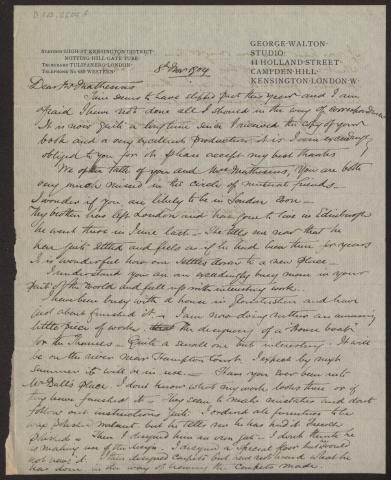 STATIONS HIGH ST KENSINGTON DISTRICT
NOTTING HILL GATE TUBE
TELEGRAMS TULIPANERO LONDON
TELEPHONE No WESTERN
GEORGE WALTON
STUDIO
44 HOLLAND STREET
CAMPDEN HILL
KENSINGTON LONDON W
8th Nov 1904
Dear Mr Muthesius
Time seems to have slipped past this year and I am
afraid I have not done all I should in the way of correspondence
It is now quite a long time since I received the copy of your
book and a very excellent production it is I am exceedingly
obliged to you for it please accept my best thanks
We often talk of you and Mrs Muthesius, You are both
very much missed in the circle of mutual friends.
I wonder if you are likely to be in London soon -
My brother has left London and has gone to live in Edinburgh
he went there in June last - He tells me now that he
has quite settled and feels as if he had been there for years
It is wonderful how one settles down to a new place -
I understand you are an exceedingly busy man in your
part of the world and full up with interesting work.
I have been busy with a house in and have
just about finished it - I am now doing rather an amusing
little piece of work, the designing of a "house boat"
for the Thames - Quite a small one but interesting. It will
be on the river near Hampton Court. I expect by next
summer it will be in use. - Have you ever been into
Mr place I dont know what my work looks like or if
they have finished it - They seem to make mistakes and dont
follow out instructions quite. I ordered all furniture to be
wax polished walnut, but he tells me he has had it French
polished - Then I designed him an and I dont think he
is making use of the design. I designed a special floor but would
not have it. I then designed carpets but
has done in the way of having the carpets made.